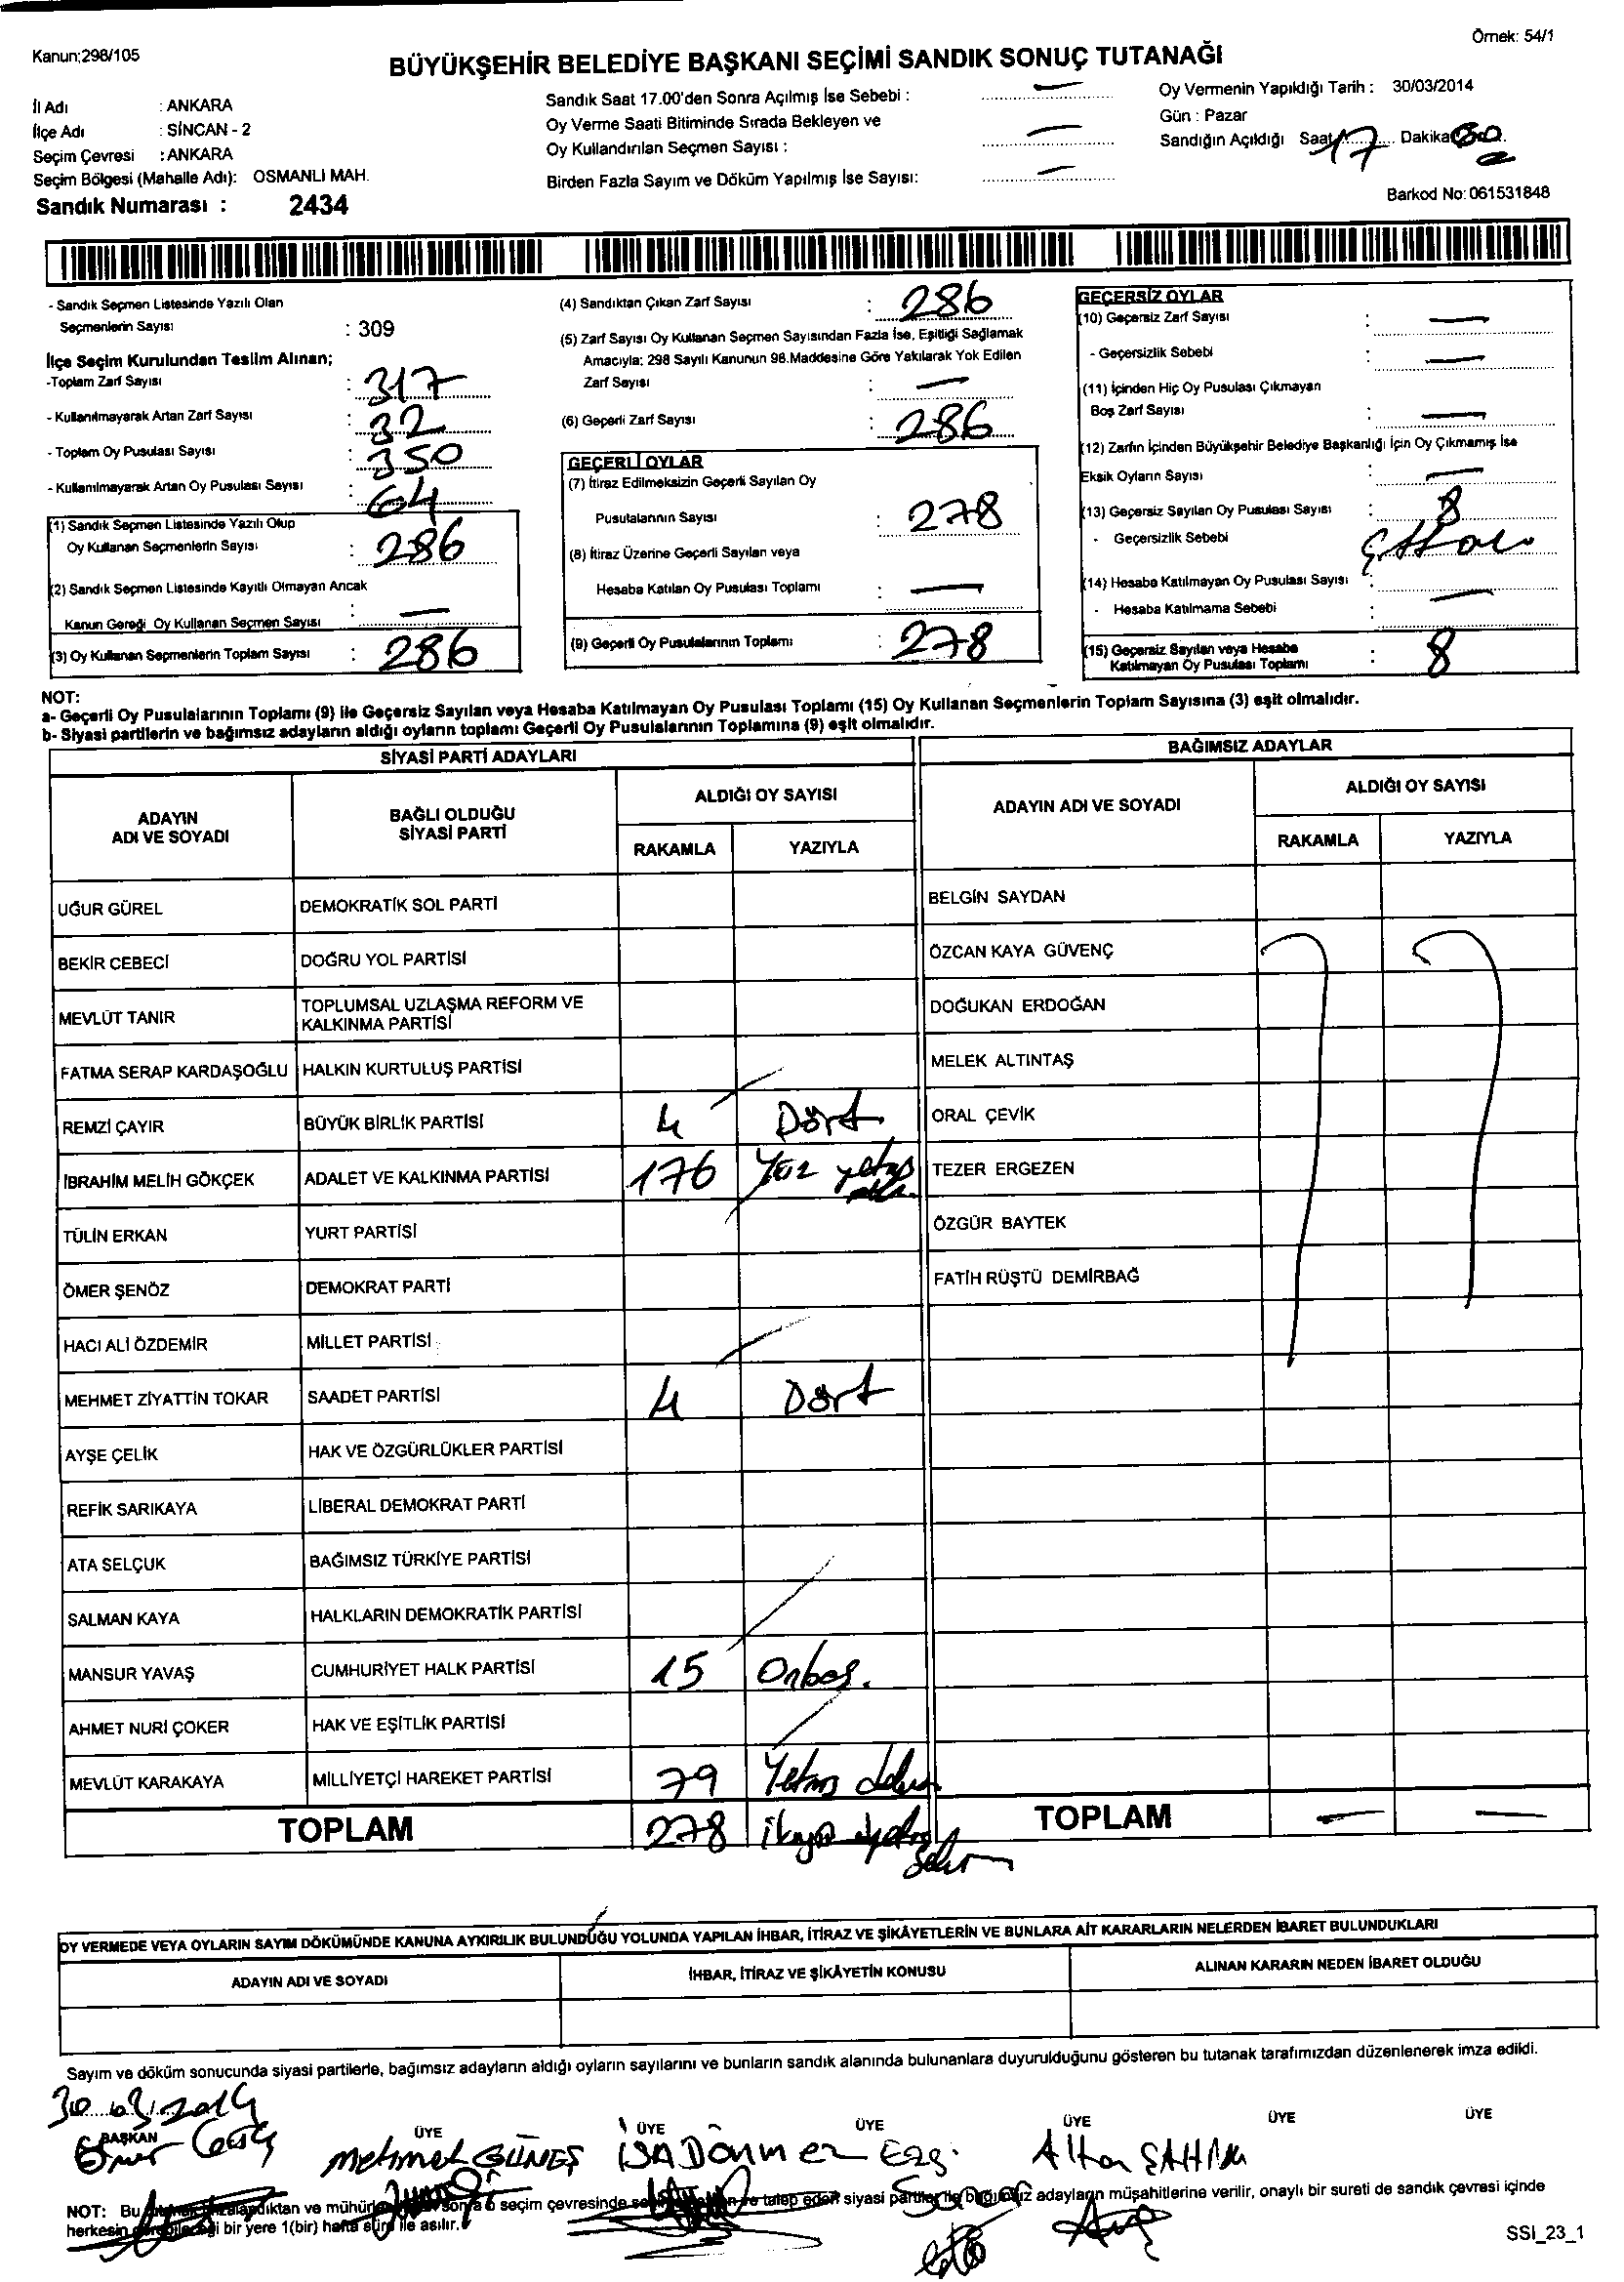 Kanun;298/105
Örnek: 54/1
BÜYÜKŞEHİR BELEDİYE BAŞKANI SEÇİMİ SANDIK SONUÇ TUTANAĞI
İl Adı : ANKARA
İlçe Adı : SİNCAN - 2
Seçim Çevresi : ANKARA
Seçim Bölgesi (Mahalle Adı): OSMANLI MAH.
Sandık Numarası : 2434
Sandık Saat 17.00'den Sonra Açılmış İse Sebebi : —
Oy Verme Saati Bitiminde Sırada Bekleyen ve
Oy Kullandırılan Seçmen Sayısı : —
Birden Fazla Sayım ve Döküm Yapılmış İse Sayısı: —
Oy Vermenin Yapıldığı Tarih : 30/03/2014
Gün : Pazar
Sandığın Açıldığı Saat 17 Dakika
Barkod No: 061531848
- Sandık Seçmen Listesinde Yazılı Olan
Seçmenlerin Sayısı : 309
İlçe Seçim Kurulundan Teslim Alınan;
-Toplam Zarf Sayısı : 317
- Kullanılmayarak Artan Zarf Sayısı : 32
- Toplam Oy Pusulası Sayısı : 350
- Kullanılmayarak Artan Oy Pusulası Sayısı : 64
(1) Sandık Seçmen Listesinde Yazılı Olup
Oy Kullanan Seçmenlerin Sayısı : 286
(2) Sandık Seçmen Listesinde Kayıtlı Olmayan Ancak
Kanun Gereği Oy Kullanan Seçmen Sayısı : —
(3) Oy Kullanan Seçmenlerin Toplam Sayısı : 286
(4) Sandıktan Çıkan Zarf Sayısı : 286
(5) Zarf Sayısı Oy Kullanan Seçmen Sayısından Fazla İse, Eşitliği Sağlamak
Amacıyla; 298 Sayılı Kanunun 98.Maddesine Göre Yakılarak Yok Edilen
Zarf Sayısı : —
(6) Geçerli Zarf Sayısı : 286
GEÇERLİ OYLAR
(7) İtiraz Edilmeksizin Geçerli Sayılan Oy
Pusulalarının Sayısı : 278
(8) İtiraz Üzerine Geçerli Sayılan veya
Hesaba Katılan Oy Pusulası Toplamı : —
(9) Geçerli Oy Pusulalarının Toplamı : 278
GEÇERSİZ OYLAR
(10) Geçersiz Zarf Sayısı : —
- Geçersizlik Sebebi : —
(11) İçinden Hiç Oy Pusulası Çıkmayan
Boş Zarf Sayısı : —
(12) Zarfın İçinden Büyükşehir Belediye Başkanlığı İçin Oy Çıkmamış İse
Eksik Oyların Sayısı : —
(13) Geçersiz Sayılan Oy Pusulası Sayısı : 8
- Geçersizlik Sebebi :
(14) Hesaba Katılmayan Oy Pusulası Sayısı : —
- Hesaba Katılmama Sebebi :
(15) Geçersiz Sayılan veya Hesaba
Katılmayan Oy Pusulası Toplamı : 8
NOT:
a- Geçerli Oy Pusulalarının Toplamı (9) ile Geçersiz Sayılan veya Hesaba Katılmayan Oy Pusulası Toplamı (15) Oy Kullanan Seçmenlerin Toplam Sayısına (3) eşit olmalıdır.
b- Siyasi partilerin ve bağımsız adayların aldığı oyların toplamı Geçerli Oy Pusulalarının Toplamına (9) eşit olmalıdır.
SİYASİ PARTİ ADAYLARI
ADAYIN ADI VE SOYADI
BAĞLI OLDUĞU SİYASİ PARTİ
ALDIĞI OY SAYISI
RAKAMLA YAZIYLA
UĞUR GÜREL DEMOKRATİK SOL PARTİ
BEKİR CEBECİ DOĞRU YOL PARTİSİ
MEVLÜT TANIR TOPLUMSAL UZLAŞMA REFORM VE KALKINMA PARTİSİ
FATMA SERAP KARDAŞOĞLU HALKIN KURTULUŞ PARTİSİ
REMZİ ÇAYIR BÜYÜK BİRLİK PARTİSİ 4 Dört
İBRAHİM MELİH GÖKÇEK ADALET VE KALKINMA PARTİSİ 176 Yüz yetmiş altı
TÜLİN ERKAN YURT PARTİSİ
ÖMER ŞENÖZ DEMOKRAT PARTİ
HACI ALİ ÖZDEMİR MİLLET PARTİSİ
MEHMET ZİYATTİN TOKAR SAADET PARTİSİ 4 Dört
AYŞE ÇELİK HAK VE ÖZGÜRLÜKLER PARTİSİ
REFİK SARIKAYA LİBERAL DEMOKRAT PARTİ
ATA SELÇUK BAĞIMSIZ TÜRKİYE PARTİSİ
SALMAN KAYA HALKLARIN DEMOKRATİK PARTİSİ
MANSUR YAVAŞ CUMHURİYET HALK PARTİSİ 15 Onbeş.
AHMET NURİ ÇOKER HAK VE EŞİTLİK PARTİSİ
MEVLÜT KARAKAYA MİLLİYETÇİ HAREKET PARTİSİ 79 Yetmiş dokuz
TOPLAM 278
BAĞIMSIZ ADAYLAR
ADAYIN ADI VE SOYADI
ALDIĞI OY SAYISI
RAKAMLA YAZIYLA
BELGİN SAYDAN
ÖZCAN KAYA GÜVENÇ
DOĞUKAN ERDOĞAN
MELEK ALTINTAŞ
ORAL ÇEVİK
TEZER ERGEZEN
ÖZGÜR BAYTEK
FATİH RÜŞTÜ DEMİRBAĞ
TOPLAM — —
OY VERMEDE VEYA OYLARIN SAYIM DÖKÜMÜNDE KANUNA AYKIRILIK BULUNDUĞU YOLUNDA YAPILAN İHBAR, İTİRAZ VE ŞİKÂYETLERİN VE BUNLARA AİT KARARLARIN NELERDEN İBARET BULUNDUKLARI
ADAYIN ADI VE SOYADI
İHBAR, İTİRAZ VE ŞİKÂYETİN KONUSU
ALINAN KARARIN NEDEN İBARET OLDUĞU
Sayım ve döküm sonucunda siyasi partilerle, bağımsız adayların aldığı oyların sayılarını ve bunların sandık alanında bulunanlara duyurulduğunu gösteren bu tutanak tarafımızdan düzenlenerek imza edildi.
30.03.2014
BAŞKAN ÜYE ÜYE ÜYE ÜYE ÜYE ÜYE
Ömer Mehmet GÜNEŞ İSA Dönmez Ezgi Altan ŞAHİN
NOT: Bu seçim çevresinde talep eden siyasi partiler ile bağımsız adayların müşahitlerine verilir, onaylı bir sureti de sandık çevresi içinde
herkesin bir yere 1(bir) hafta süre ile asılır.
SSI_23_1